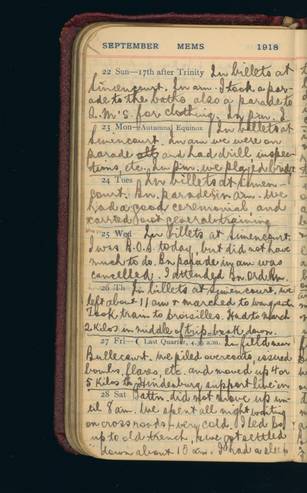 SEPTEMBER MEMS 1918
22 Sun—17th after Trinity In billets at
Simencourt. In am. I took a par-
ade to the baths also a parade to
Q.M's. for clothing. In pm. I
23 Mon—Autumnal Equinox In billets at
Simencourt. In am we were on
parade and had drill, inspec-
tions, etc. In pm. we played
24 Tues In billets at Simen-
court. Bn. parade in am. We
had a good ceremonial and
carried out general training
25 Wed In billets at Simencourt.
I was B.O.S. today, but did not have
much to do. Bn parade in am was
cancelled. I attended Bn. Ord. Rm.
26 Th In billets at Simencourt. We
left about 11 am & marched to
Took train to Croisilles. Had to march
2 kilos in middle of trip
27 Fri—( Last Quarter, 4.39 a.m. In field near
Bullecourt. We piled overcoats, issued
bombs, flares, etc. and moved up 4 or
5 kilos to Hindenburg support line in
28 Sat Battn. did not move up un-
til 8 am. We spent all night waiting
on cross roads & very cold. I led Coy
up to old trench, & we got settled
down about 10 am. I had a sleep